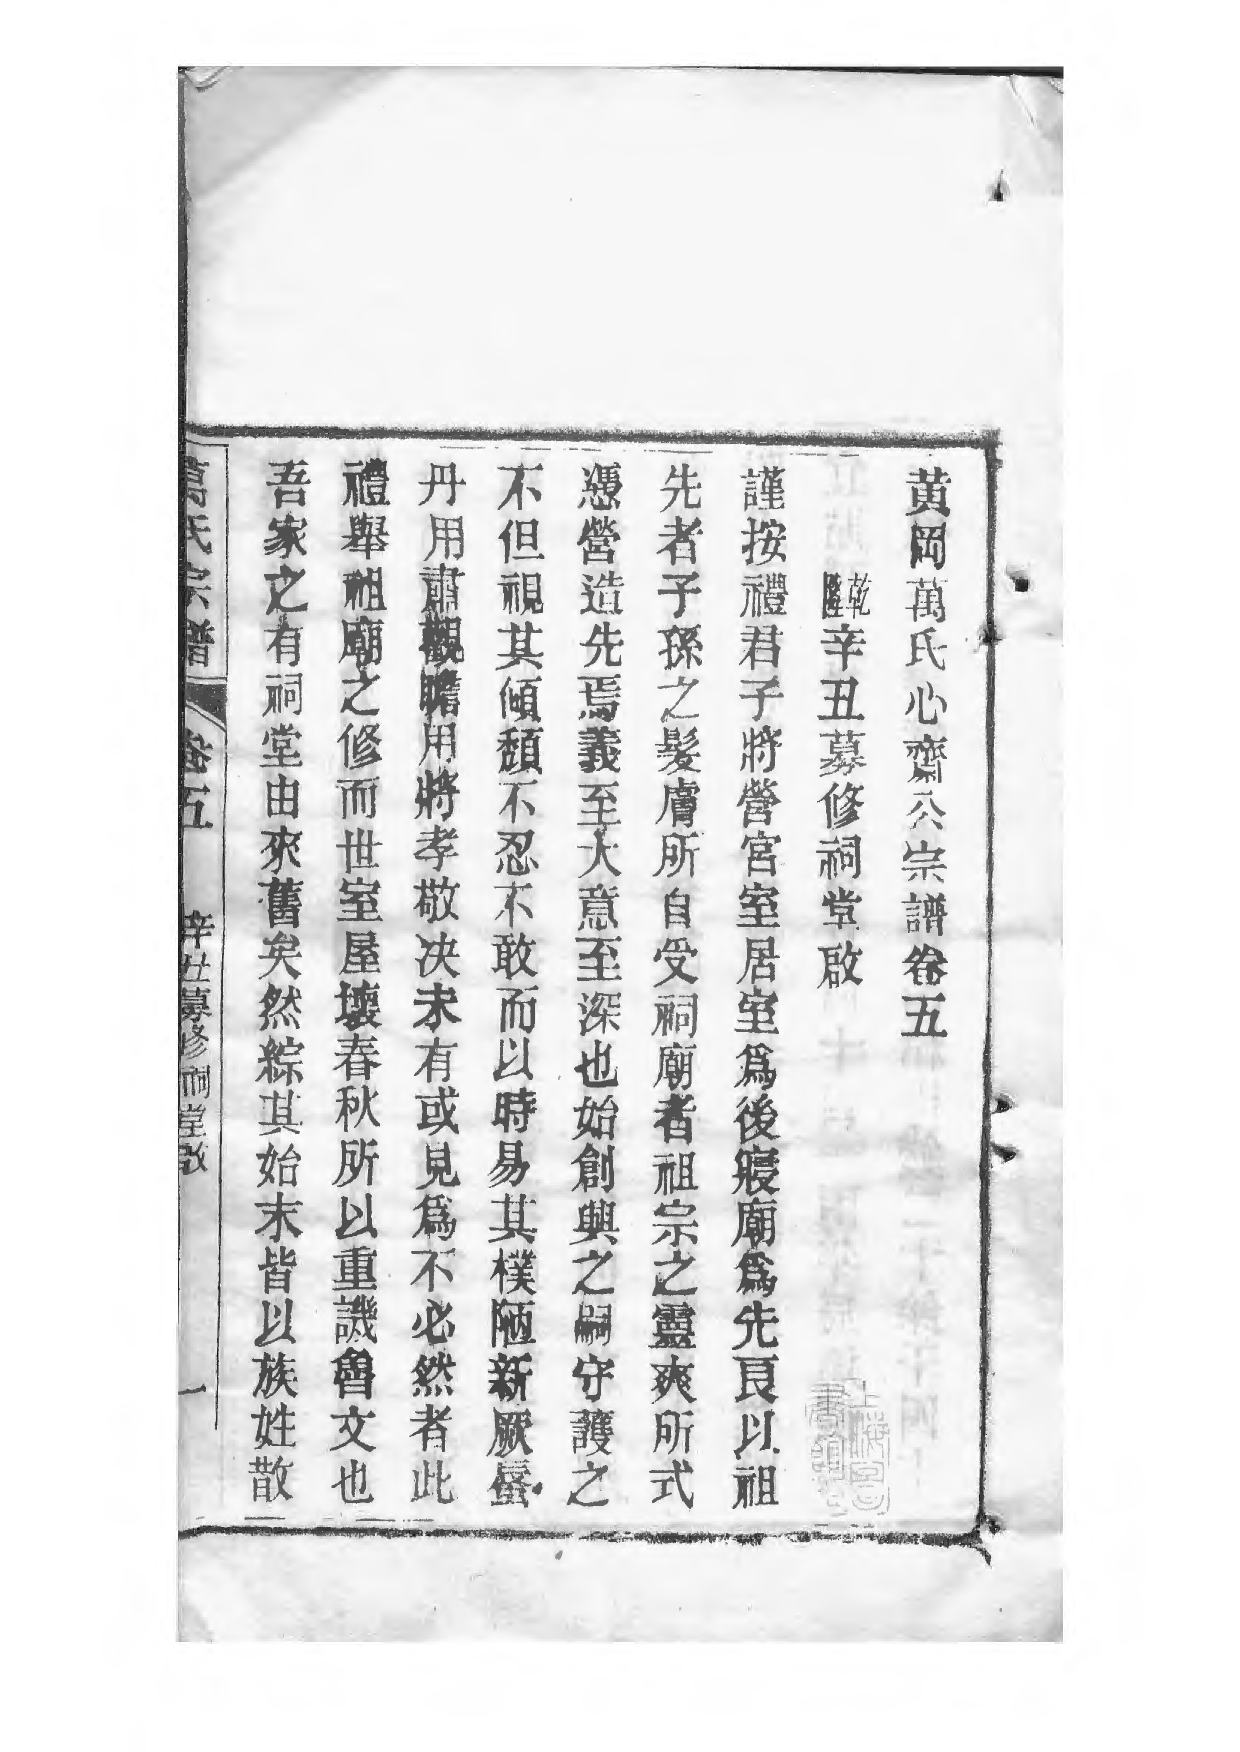 黃岡萬氏心齋公宗譜卷五
乾隆辛丑募修祠堂啟
謹按禮君子將營宮室居室爲後寢廟爲先良以祖
先者子孫之髮膚所自受祠廟者祖宗之靈爽所式
憑營造先焉義至大意至深也始創興之嗣守護之
不但視其傾頽不忍不敢而以時易其樸陋新厥蜃
丹用肅觀瞻用將孝敬决未有或見爲不必然者此
禮舉祖廟之修而世室屋壞春秋所以重譏魯文也
吾家之有祠堂由來舊矣然綜其始末皆以族姓散
萬氏宗譜 卷五 辛丑募修祠堂啟 一
上海圖書館藏